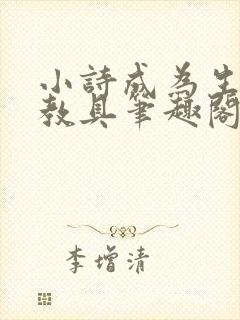 小詩成為生
教具筆趣閣
李增清